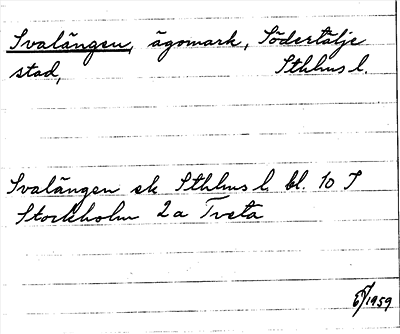 Svalängen, ägomark, Södertälje
stad, Sthlms l.
Svalängen ek Sthlms l. bl. 10 I
Stockholm 2a Tveta
1959